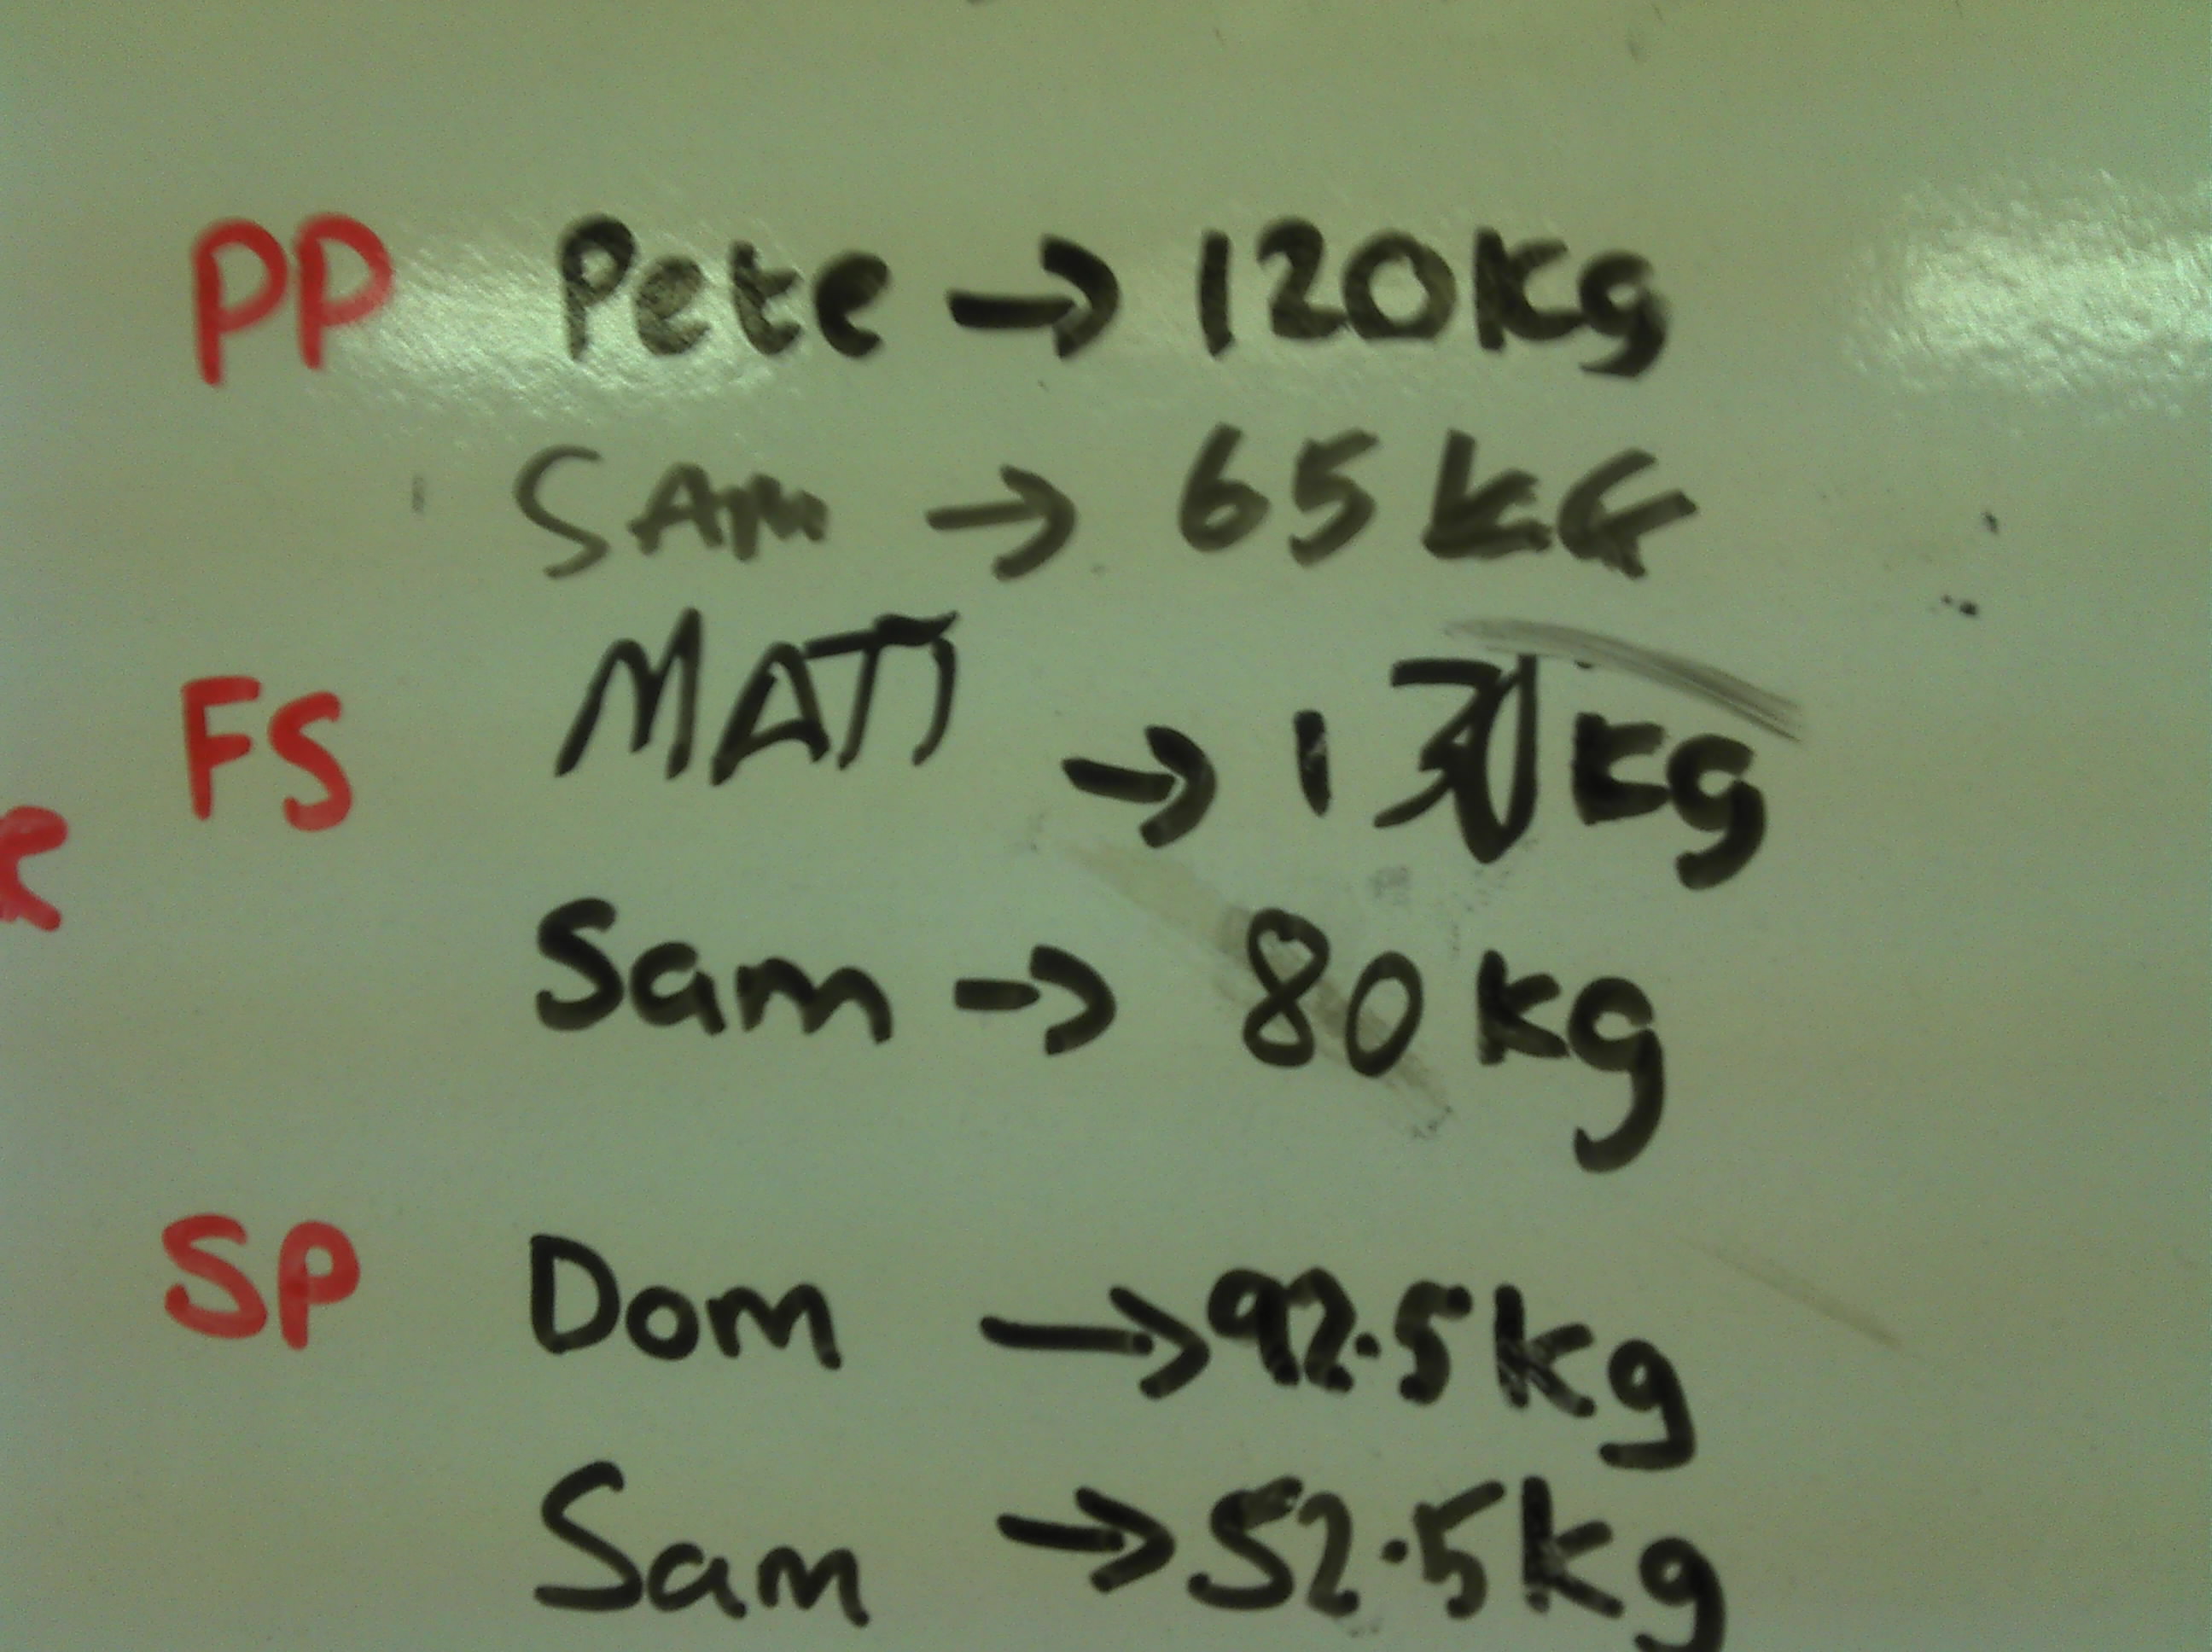 PP Pete → 120kg
SAM → 65 KG
FS MATT → 130kg
Sam → 80 kg
SP Dom → 92.5kg
Sam → 52.5kg